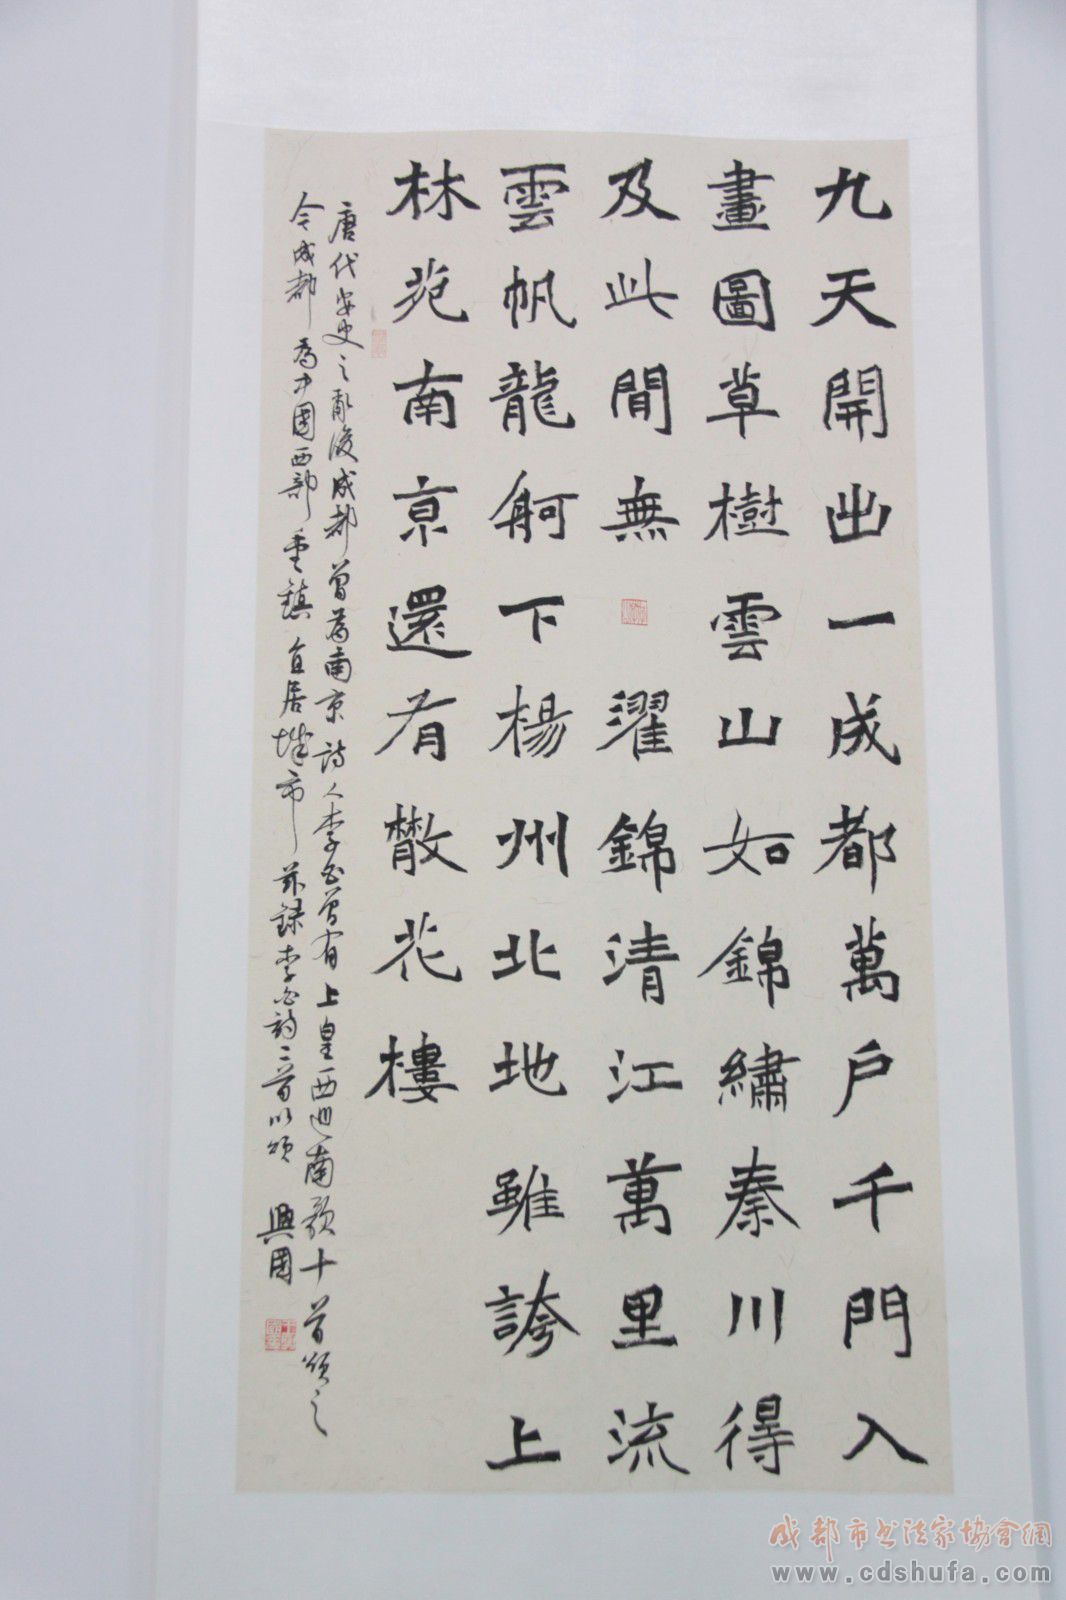 九天開出一成都萬户千門入
畫圖草樹雲山如錦繡秦川得
及此間無 濯錦清江萬里流
雲帆龍舸下楊州北地雖誇上
林苑南京還有散花樓
唐代安史之亂後成都曾為南京詩人李白曾有上皇西巡南歌十首頌之
今成都為中國西部重鎮宜居城市茲錄李白詩二首以頌 興國
成都市书法家協會網
www.cdshufa.com